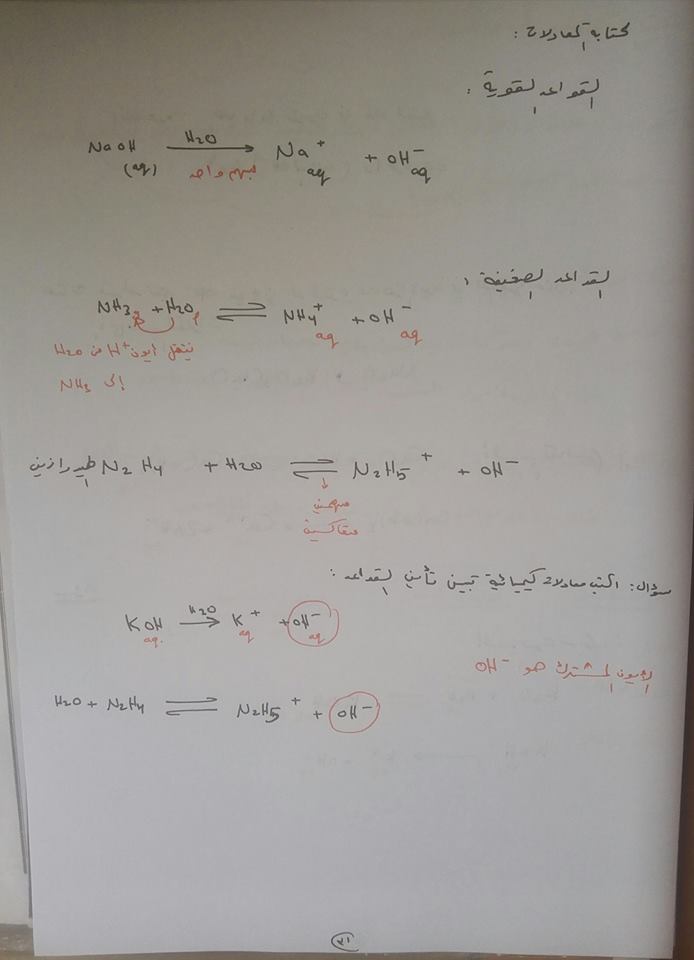 كتابة المعادلات :
القواعد القوية :
NaOH (aq) H2O → Na+ aq + OH- aq
بسهم واحد
القواعد الضعيفة :
NH3 g + H2O l ⇌ NH4+ aq + OH- aq
ينتقل أيون H+ من H2O
إلى NH3
هيدرازين N2H4 + H2O ⇌ N2H5+ + OH-
سهمين
متعاكسين
سؤال: اكتب معادلات كيميائية تبين تأين القواعد :
KOH aq. H2O → K+ aq + OH- aq
الأيون المشترك هو OH-
H2O + N2H4 ⇌ N2H5+ + OH-